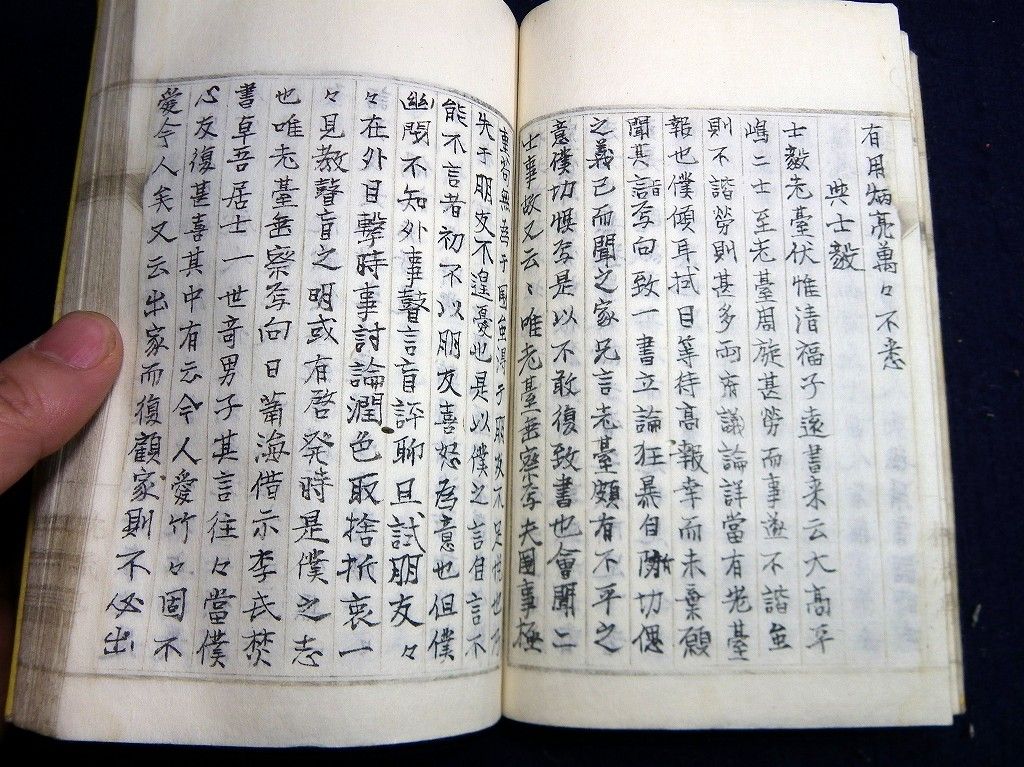 有用炳亮萬々不悉
與士毅
士毅老臺伏惟清福子遠書来云大高平
嶋二士至老臺周旋甚勞而事遂不諧並
則不諧勞則甚多両府議論詳當有老臺
報也僕傾耳拭目等待高報幸而未棄願
聞其詣向致一書立論狂暴自切偲
之義已而聞之家兄言老臺頗有不平之
意僕切懼是以不敢復致書也會聞二
士事故又云々唯老臺垂察夫国事極
重
失于朋友不遑憂也是以僕之言自言不
能不言者初不以朋友喜怒為意也但僕
幽閉不知外事聾言盲評聊且試朋友々
々在外目撃時事討論潤色取捨折衷一
々見教聾盲之明或有啓発時是僕之志
也唯老臺垂察向日蕭海借示李氏焚
書卓吾居士一世奇男子其言往々當僕
心友復甚喜其中有云令人愛竹々固不
愛令人矣又云出家而復顧家則不必出